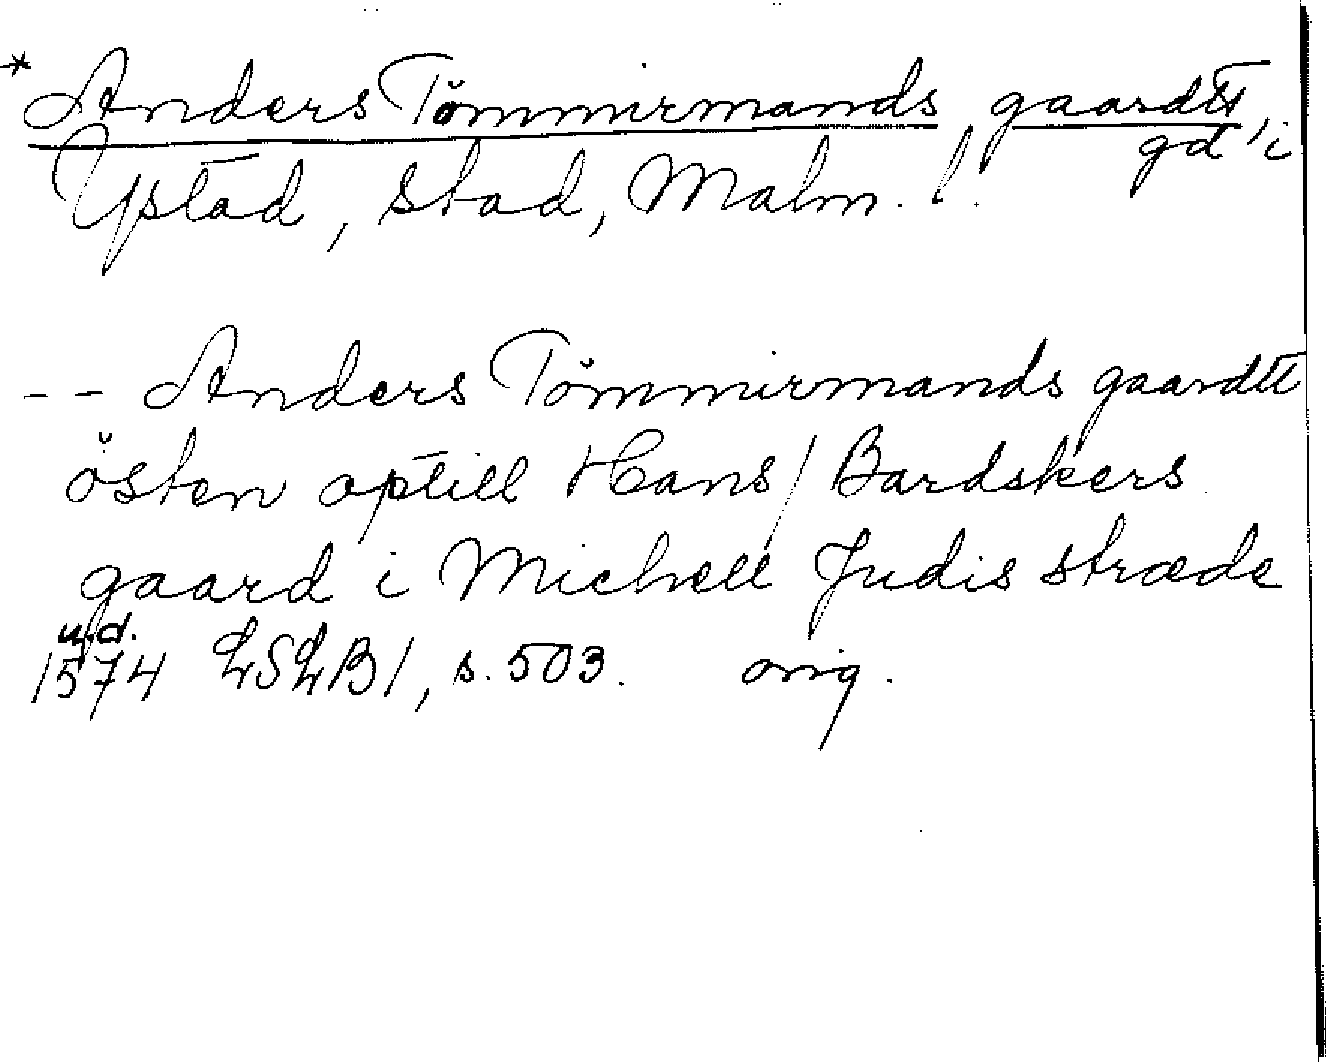 * Anders Tömmirmands gaardtt,
gd i
Ystad, stad, Malm. l.
-- Anders Tömmirmands gaardtt
östen optill Hans / Bardskers
gaard i Michell Judis stræde
u.d.
1574 LSLB 1, s. 503. orig.